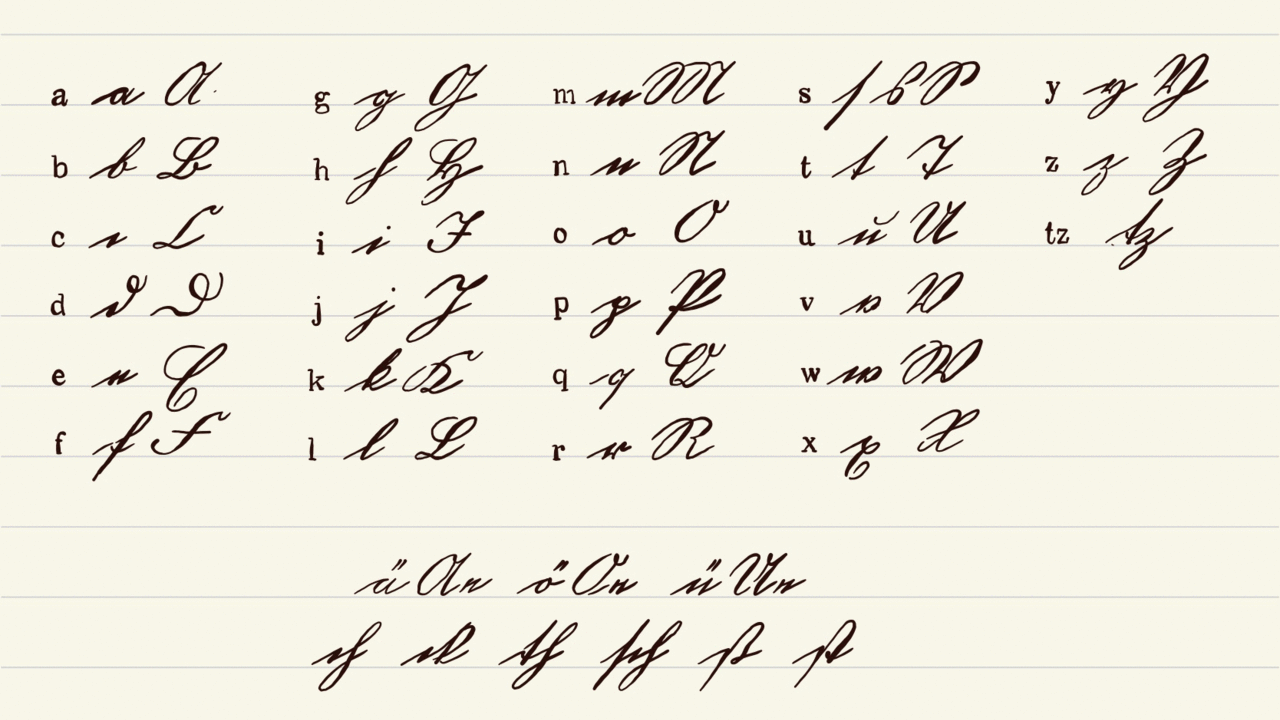 a a A g g G m m M s ſ s S y y Y
b b B h h H n n N t t T z z Z
c c C i i I o o O u u U tz tz
d d D j j J p p P v v V
e e E k k K q q Q w w W
f f F l l L r r R x x X
ä Ae ö Oe ü Ue
ch ck th sch ß st